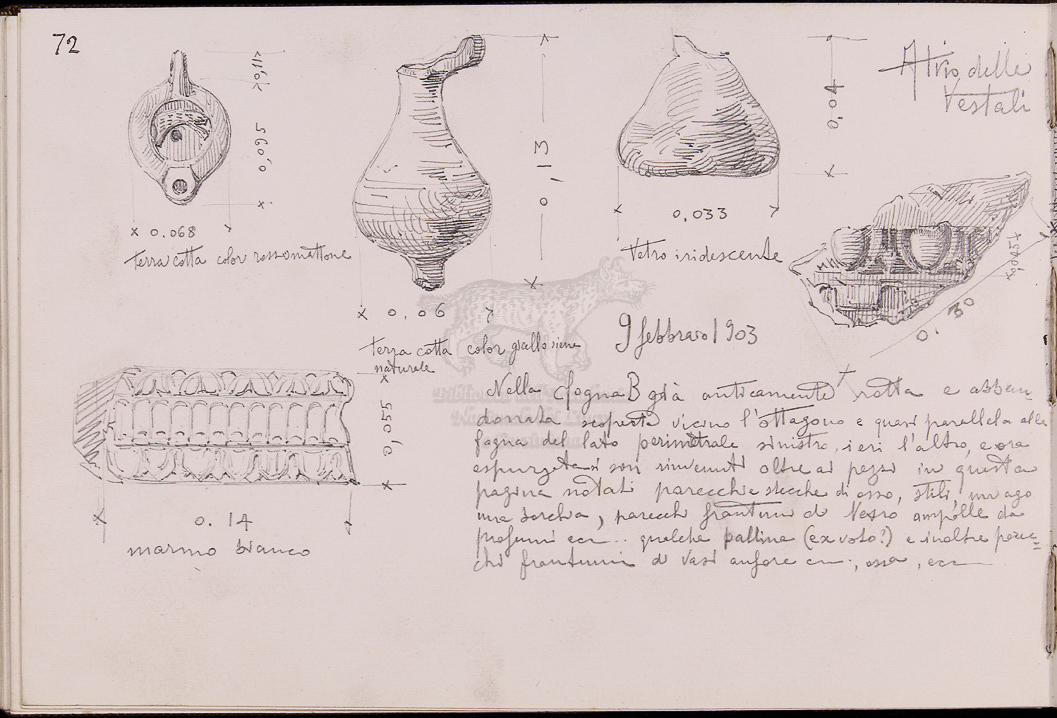 72
Atrio delle
Vestali
0,11
0.095
x 0.068
terra cotta color rosso mattone
0,13
x 0,06
terra cotta color giallo siena
naturale
0,04
x 0,033
Vetro iridescente
0,30
9 febbraio 1903
0,055
0.14
marmo bianco
Nella fogna B già anticamente rotta e abban
donata scoperta vicino l'ottagono e quasi parallela alla
fogna del lato perimetrale sinistro, ieri l'altro, e ora
espurgata si son rinvenuti oltre ai pezzi in questa
pagina notati parecchie stecche di osso, stili, un ago
una torchia, parecchi frantumi di Vetro ampolle da
profumi ecc... qualche pallina (ex voto?) e inoltre parec=
chi frantumi di vasi anfore ecc., ossa, ecc